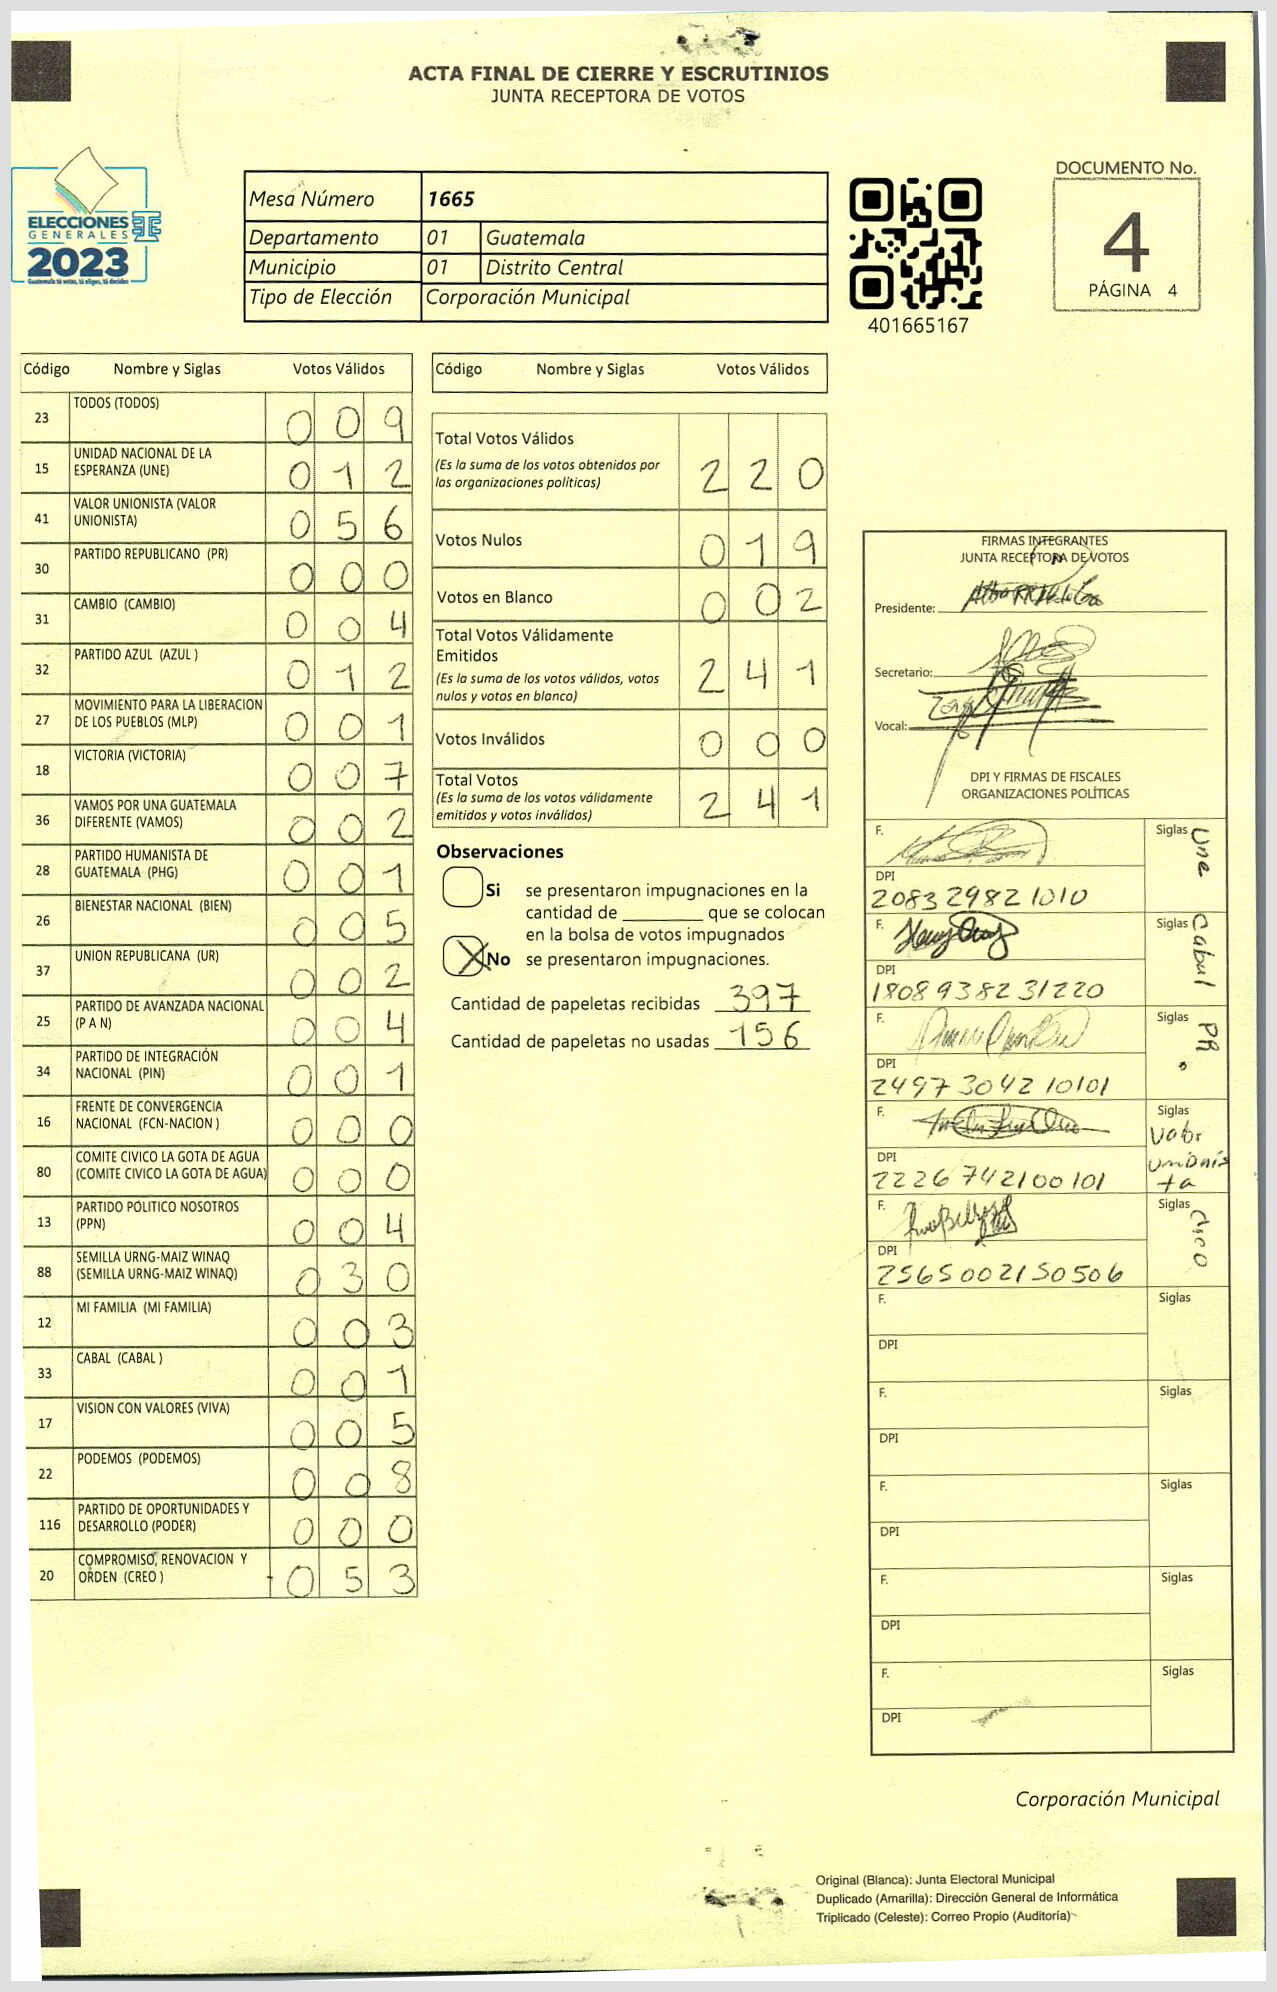 ACTA FINAL DE CIERRE Y ESCRUTINIOS
JUNTA RECEPTORA DE VOTOS
ELECCIONES
GENERALES
2023
Guatemala tú votas, tú eliges, tú decides
Mesa Número 1665
Departamento 01 Guatemala
Municipio 01 Distrito Central
Tipo de Elección Corporación Municipal
401665167
DOCUMENTO No.
4
PÁGINA 4
Código Nombre y Siglas Votos Válidos
23 TODOS (TODOS) 0 0 9
15 UNIDAD NACIONAL DE LA ESPERANZA (UNE) 0 1 2
41 VALOR UNIONISTA (VALOR UNIONISTA) 0 5 6
30 PARTIDO REPUBLICANO (PR) 0 0 0
31 CAMBIO (CAMBIO) 0 0 4
32 PARTIDO AZUL (AZUL ) 0 1 2
27 MOVIMIENTO PARA LA LIBERACION DE LOS PUEBLOS (MLP) 0 0 1
18 VICTORIA (VICTORIA) 0 0 7
36 VAMOS POR UNA GUATEMALA DIFERENTE (VAMOS) 0 0 2
28 PARTIDO HUMANISTA DE GUATEMALA (PHG) 0 0 1
26 BIENESTAR NACIONAL (BIEN) 0 0 5
37 UNION REPUBLICANA (UR) 0 0 2
25 PARTIDO DE AVANZADA NACIONAL (P A N) 0 0 4
34 PARTIDO DE INTEGRACIÓN NACIONAL (PIN) 0 0 1
16 FRENTE DE CONVERGENCIA NACIONAL (FCN-NACION ) 0 0 0
80 COMITE CIVICO LA GOTA DE AGUA (COMITE CIVICO LA GOTA DE AGUA) 0 0 0
13 PARTIDO POLITICO NOSOTROS (PPN) 0 0 4
88 SEMILLA URNG-MAIZ WINAQ (SEMILLA URNG-MAIZ WINAQ) 0 3 0
12 MI FAMILIA (MI FAMILIA) 0 0 3
33 CABAL (CABAL ) 0 0 1
17 VISION CON VALORES (VIVA) 0 0 5
22 PODEMOS (PODEMOS) 0 0 8
116 PARTIDO DE OPORTUNIDADES Y DESARROLLO (PODER) 0 0 0
20 COMPROMISO, RENOVACION Y ORDEN (CREO ) 0 5 3
Código Nombre y Siglas Votos Válidos
Total Votos Válidos
(Es la suma de los votos obtenidos por
las organizaciones políticas) 2 2 0
Votos Nulos 0 1 9
Votos en Blanco 0 0 2
Total Votos Válidamente
Emitidos
(Es la suma de los votos válidos, votos
nulos y votos en blanco) 2 4 1
Votos Inválidos 0 0 0
Total Votos
(Es la suma de los votos válidamente
emitidos y votos inválidos) 2 4 1
Observaciones
Si se presentaron impugnaciones en la
cantidad de ________ que se colocan
en la bolsa de votos impugnados
No se presentaron impugnaciones.
Cantidad de papeletas recibidas 397
Cantidad de papeletas no usadas 156
FIRMAS INTEGRANTES
JUNTA RECEPTORA DE VOTOS
Presidente:
Secretario:
Vocal:
DPI Y FIRMAS DE FISCALES
ORGANIZACIONES POLÍTICAS
F. Siglas Une
DPI
2083 29821010
F. Siglas Cabal
DPI
1808938231220
F. Siglas PR
DPI
2497304210101
F. Siglas Valor unionista
DPI
2226742100101
F. Siglas Creo
DPI
2565002150506
F. Siglas
DPI
F. Siglas
DPI
F. Siglas
DPI
F. Siglas
DPI
F. Siglas
DPI
Corporación Municipal
Original (Blanca): Junta Electoral Municipal
Duplicado (Amarilla): Dirección General de Informática
Triplicado (Celeste): Correo Propio (Auditoría)